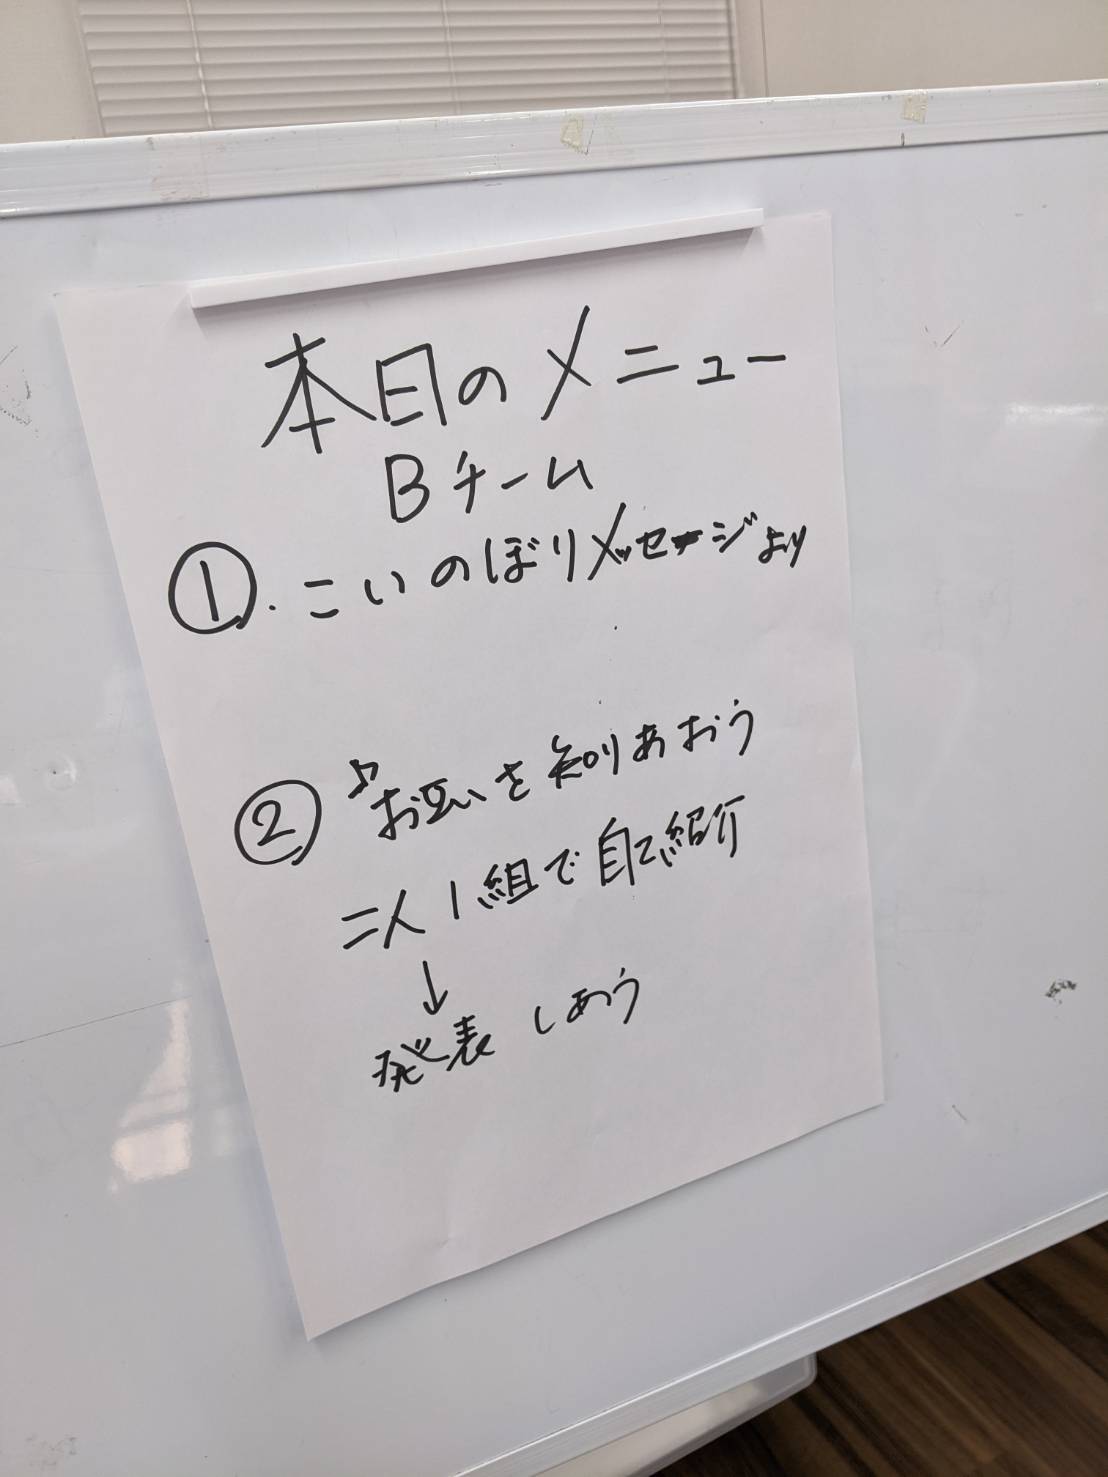 本日のメニュー
Bチーム
①.こいのぼりメッセージより
②♪お互いを知りあおう
二人1組で自己紹介
↓
発表しあう